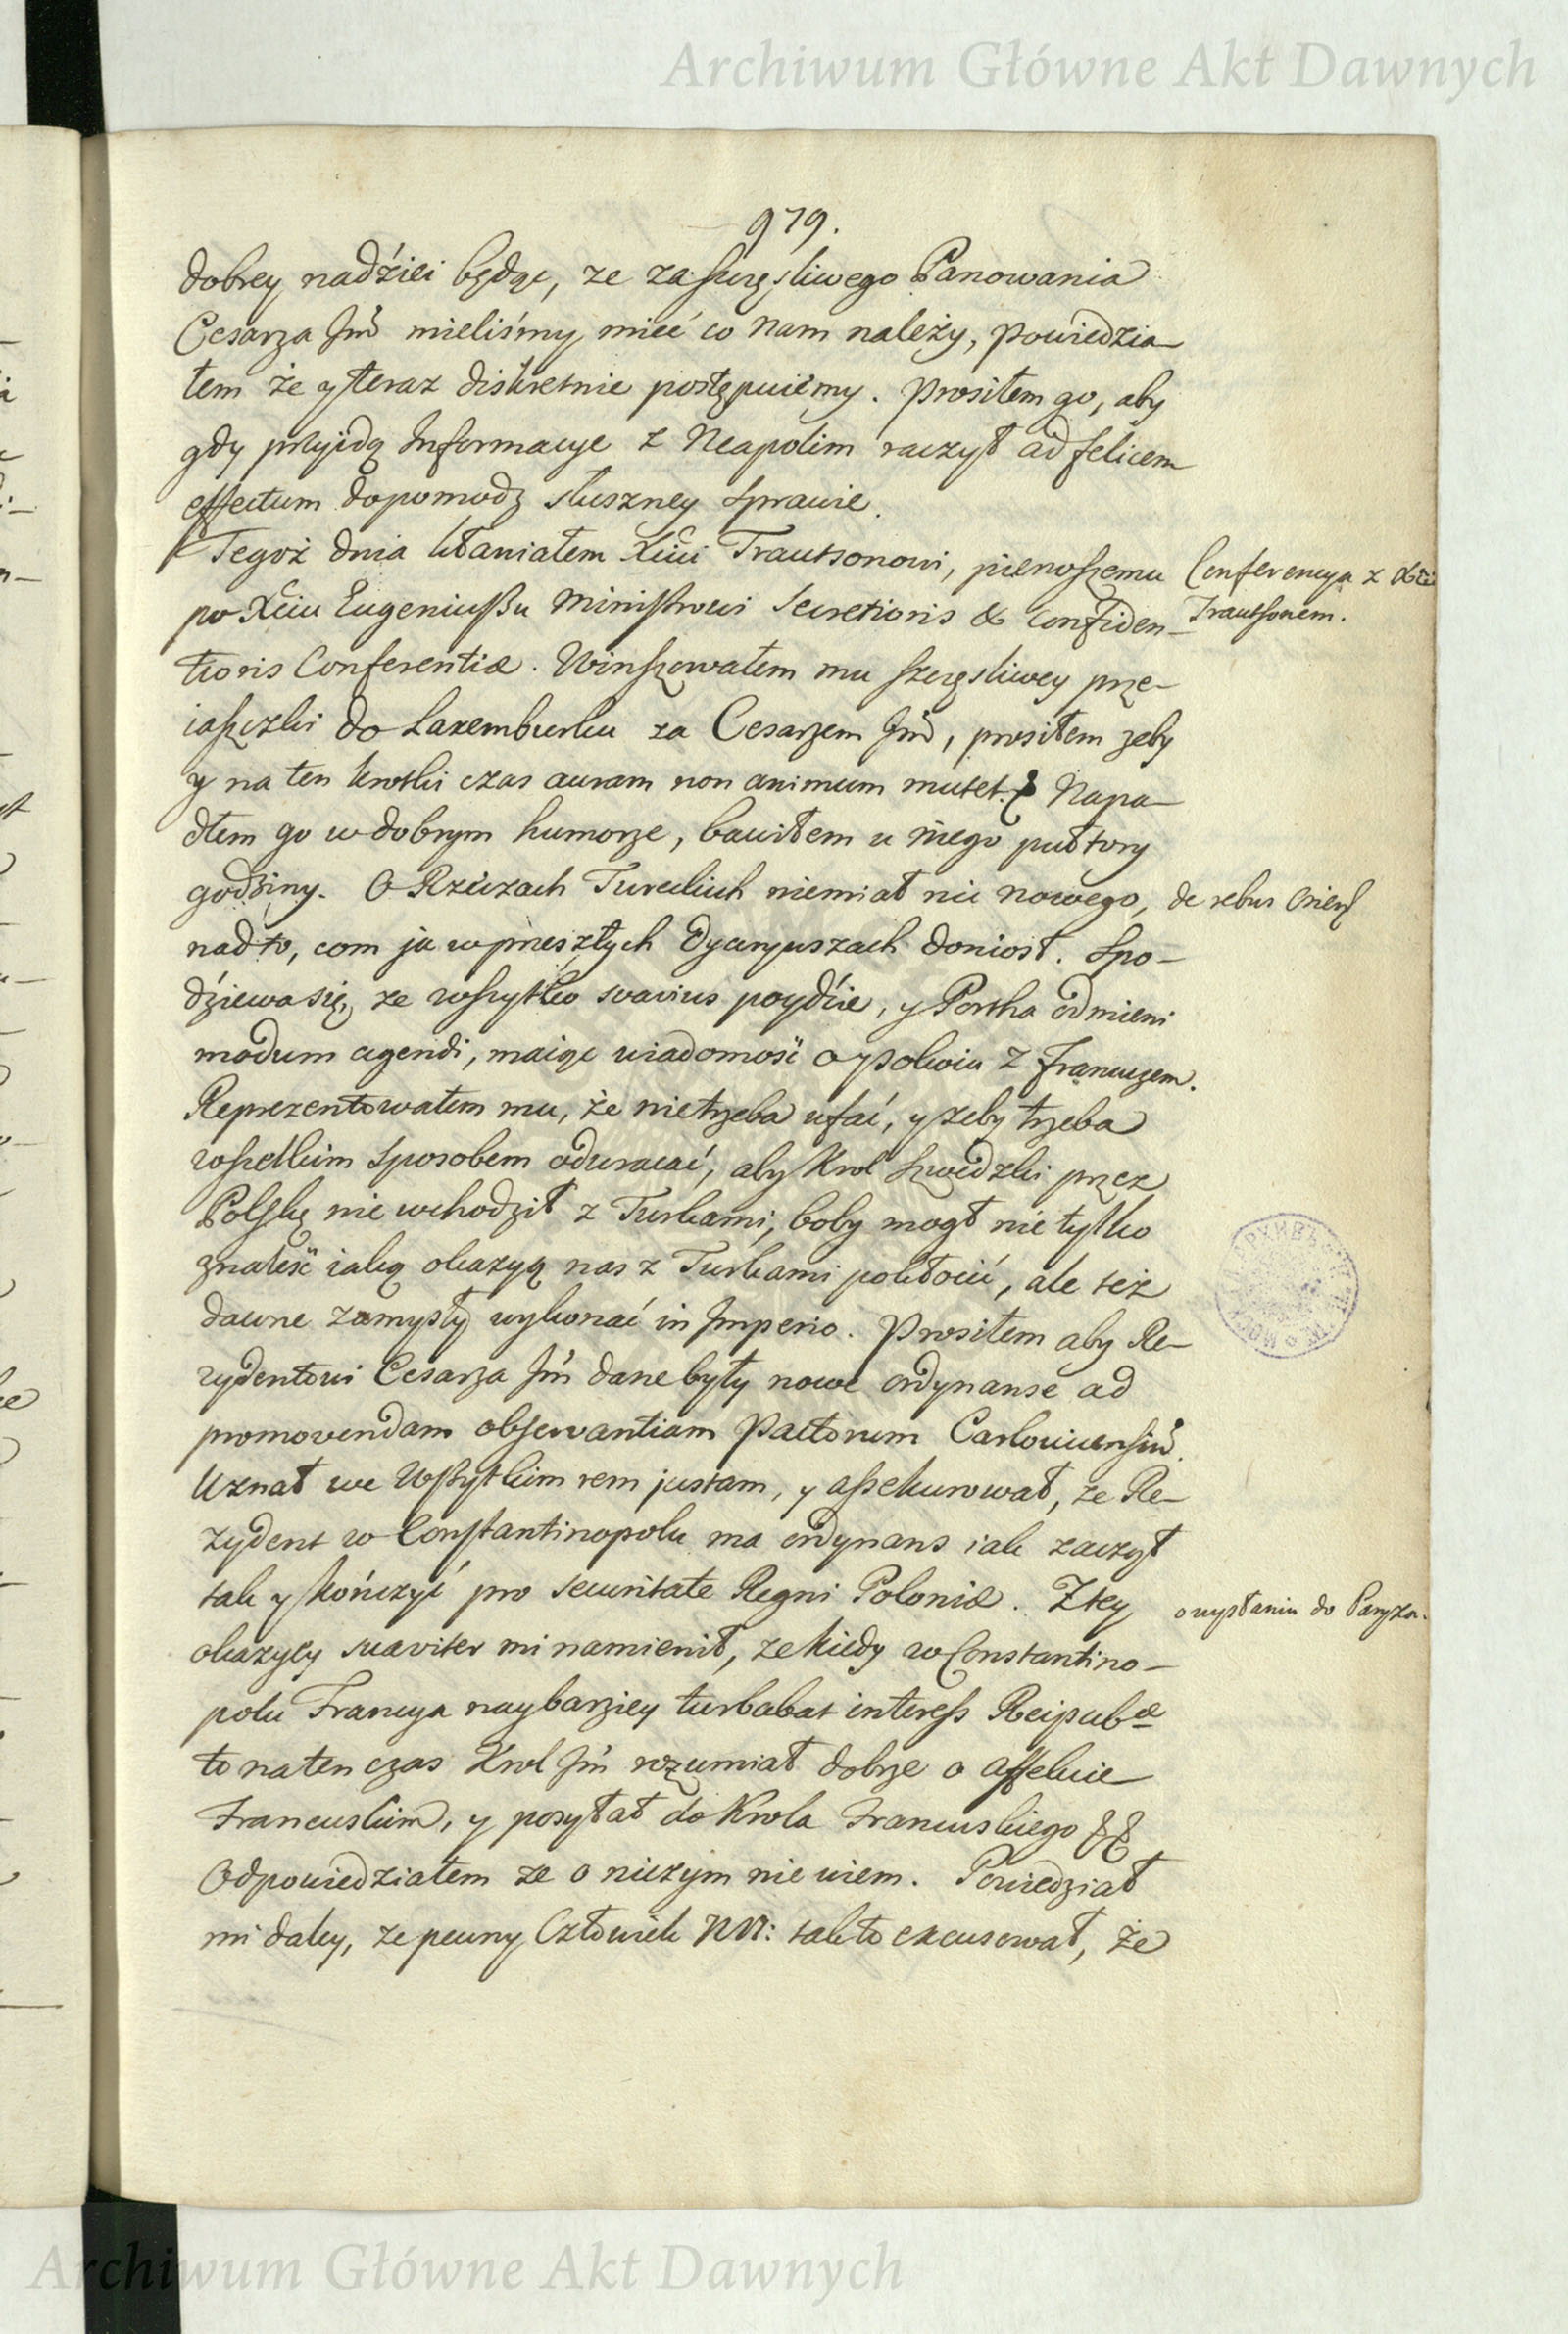 Archiwum Główne Akt Dawnych
979.
dobrey nadźiei będąc, ze za szczęsliwego Panowania
Cesarza Jmć mieliśmy mieć co nam należy, powiedzia-
łem że y teraz diskretnie postępuiemy. Prosiłem go, aby
gdy przyidą Informacye z Neapolim raczył ad felicem
effectum dopomodz słuszney sprawie.
Tegoż dnia kłaniałem Xciu Trautsonowi, pierwszemu
po Xciu Eugeniuszu Ministrowi Secretioris & Confiden-
tioris Conferentiæ. Winszowałem mu szczęsliwey prze-
iaszczki do Laxemburku za Cesarzem Jmć, prosiłem zeby
y na ten krotki czas auram non animum mutet. Napa-
dłem go w dobrym humorze, bawiłem u niego pułtory
godziny. O Rzeczach Tureckich niemiał nic nowego,
nad to, com ja w przeszłych dyaryuszach doniosł. Spo-
dźiewa się, ze wszytko suavius poydźie, y Portha odmieni
modum agendi, maiąc wiadomość o pokoiu z Francuzem.
Reprezentowałem mu, że nietrzeba ufać, y zeby trzeba
wszelkim sposobem odwracać, aby Krol Szwedzki przez
Polskę nie wchodził z Turkami, boby mogł nie tylko
znaleść iaką okazyą nas z Turkami pokłocić, ale też
dawne zamysły wykonać in Imperio. Prosiłem aby Re-
zydentowi Cesarza Jmć dane były nowe ordynanse ad
promovendam observantiam Pactorum Carlovicensium.
Uznał we Wszytkim rem justam, y assekurował, ze Re-
zydent w Constantinopolu ma ordynans iak zaczył
tak y kończyć pro securitate Regni Poloniæ. Z tey
okazyey suaviter mi namienił, ze kiedy w Constantino-
polu Francya naybarziey turbabat interess Reipubæ
to na ten czas Krol Jmć rozumiał dobrze o affekcie
Francuskim, y posyłał do Krola Francuskiego
Odpowiedziałem ze o niczym nie wiem. Powiedział
mi daley, ze pewny Człowiek NN: tak to excusował, że
Conferencya z Xciem
Trautsonem.
de rebus Orient
o wysłaniu do Paryza.
Archiwum Główne Akt Dawnych